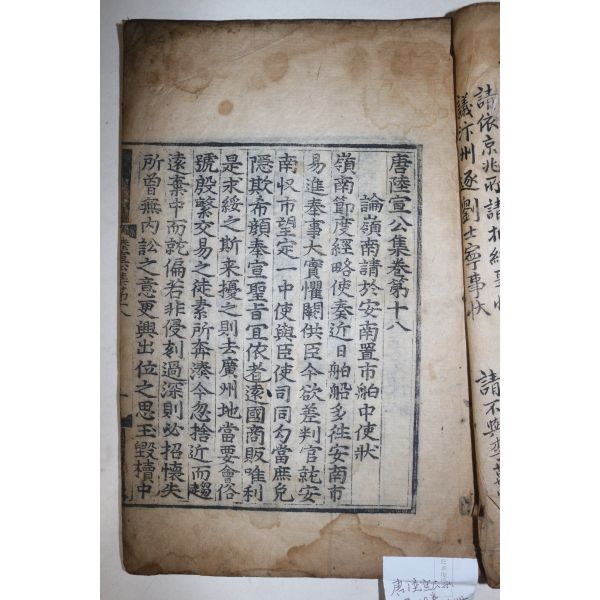 請依京兆所請折納事狀
議汴州逐劉士寧事狀
請不與李
唐陸宣公集卷第十八
論嶺南請於安南置市舶中使狀
嶺南節度經略使奏近日舶船多徃安南市
易進奉事大實懼闕供臣今欲差判官就安
南収市望定一中使與臣使司同勾當庶免
隱欺希顔奉宣聖旨宜依者遠國商販唯利
是求綏之斯来擾之則去廣州地當要會俗
號殷繁交易之徒素所奔湊今忽捨近而趨
遠棄中而就偏若非侵刻過深則必招懷失
所曾無內訟之意更興出位之思玉毀櫝中